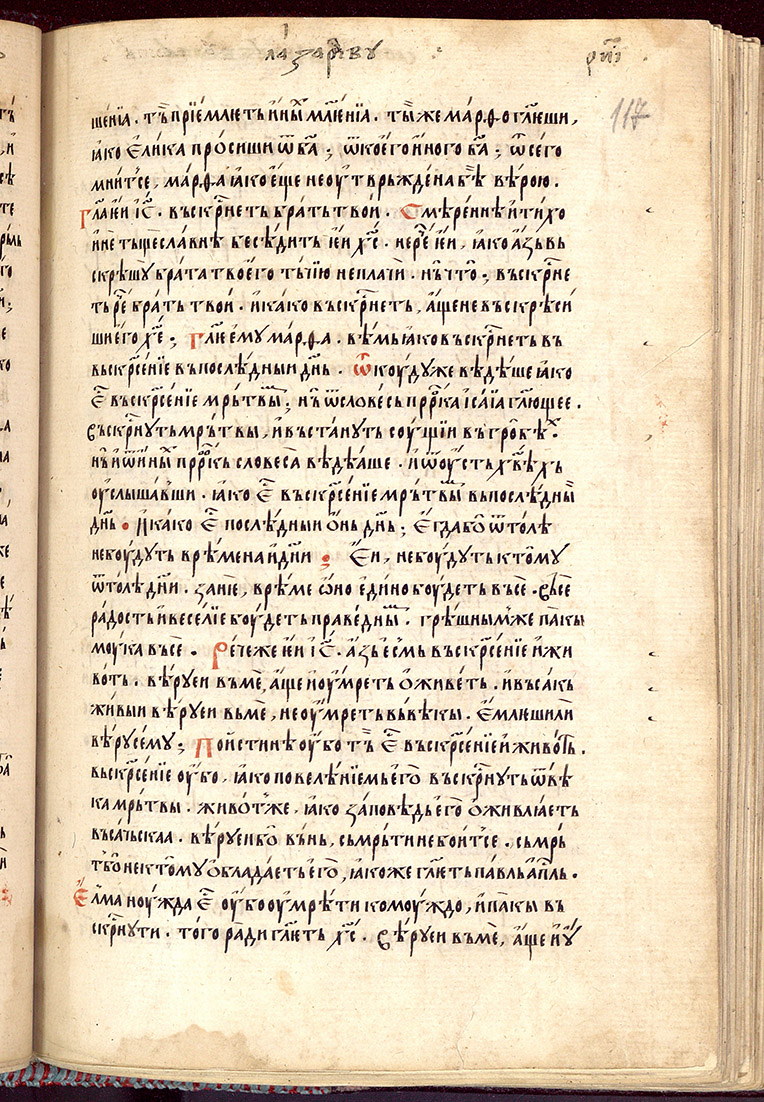 лазарⷭ҇вꙋ
рз҃і
117
щенїа. тъ прїемлеть и҆ны́ⷯ мл҃енїа. ты́ же ма́рѳо гл҃еши,
ꙗ҆ко є҆лика просиши ѿ б҃а; ѿ кое́го и҆ного б҃а; ѿ сего
мни́тсе, ма́рѳа ꙗ҆ко є҆ще не оу҆тврьжде́на бѣ вѣ́рою.
Гл҃а и҆еи і҆с҃. въскрⷭ҇неть бра́ть твои. Смѣ́реннѣ и҆ ти́хо
и҆ не тъщесла́внѣ бесѣ́дить и҆еи хс҃. не рⷱ҇е и҆еи, ꙗ҆ко а҆зь вь
скрѣшꙋ бра́та твоѐго тъ́чїю не пла́чи. нь̀ что̀; въскрⷭ҇не
ть рⷱ҇е бра́ть твои. и҆ ка́ко въскрⷭ҇неть, а҆́ще не въскрѣ́си
ши е҆го хе҃; Гл҃а е҆му ма́рѳа. вѣ́мь ꙗ҆ко въскрⷭ҇неть въ
выскрⷭ҇енїе въ послѣ́дныи дн҃ь. Ѿкоу́дꙋ же вѣ́дѣше ꙗ҆ко
є҆ⷭ҇ въскрⷭ҇е́нїе мрь́твыⷨ; нь̀ ѿ словесь прⷪ҇рка и҆са́їа гл҃ющее.
въскрⷭ҇нуть мрь́твы, и҆ въста́нуть соу́щїи въ гробѣ́ⷯ.
нь̀ и҆ ѿ и҆ны́ⷯ прⷪ҇ркь словеса вѣ́дѣаше. и҆ ѿ оу҆сть хв҃ѣхь
оу҆слы́шавши. ꙗ҆ко є҆ⷭ҇ въскрⷭ҇е́нїе мрь́твыⷨ вь послѣ́дны
дн҃ь. И҆ ка́ко є҆ⷭ҇ послѣ́дныи ѻ҆нь дн҃ь; є҆гда бо̀ ѿто́лѣ
не боу́дуть врѣ́мена и҆ дн҃їи; Є҆и, не боу́дуть к томꙋ
ѿто́лѣ дн҃їи. за́нїе, врѣ́ме ѻ҆но еди́но боу́деть въсѐ. въсе
ра́дость и҆ весе́лїе боу́деть пра́веⷣныⷨ. грѣ́шным же па́кы
моу́ка въсе. Рече же и҆еи і҆с҃. а҆зь е҆смь въскрⷭ҇е́нїе и҆ жи
во́ть. вѣ́руеи въ мѐ, а҆́ще и҆ оу҆мреть ѻ҆живе́ть. и҆ въса́кь
жи́выи вѣ́руеи вь мѐ, не оу҆мреть вь вѣ́кы. е҆млѥши ли
вѣ́ру се́му; Пои́стинѣ оу҆бо ты̀ є҆ⷭ҇ въскрⷭ҇е́нїе и҆ живо́ть.
выскрⷭ҇е́нїе оу҆бо, ꙗ҆ко повелѣ́нїемь е҆го въскрⷭ҇нуть ѿ вѣ
ка мрь́твы. живо́т же, ꙗ҆ко за́повѣдь е҆го ѻ҆живлꙗ́еть
въса́чьскаа. вѣ́руеи бо̀ въ нь, сьмрь́ти не бои́тсе. сьмрь
ть бо̀ не к томꙋ ѻ҆блада́еть е҆го, ꙗ҆ко же гл҃еть па́вль а҆пⷭ҇ль.
Є҆лма ноу́жда є҆ⷭ҇ оу҆бо оу҆мрѣ́ти комоу́ждо, и҆ па́кы въ
скрⷭ҇нути. того ра́ди гл҃еть хс҃. вѣ́руеи въ мѐ, а҆́ще и҆ ꙋ҆